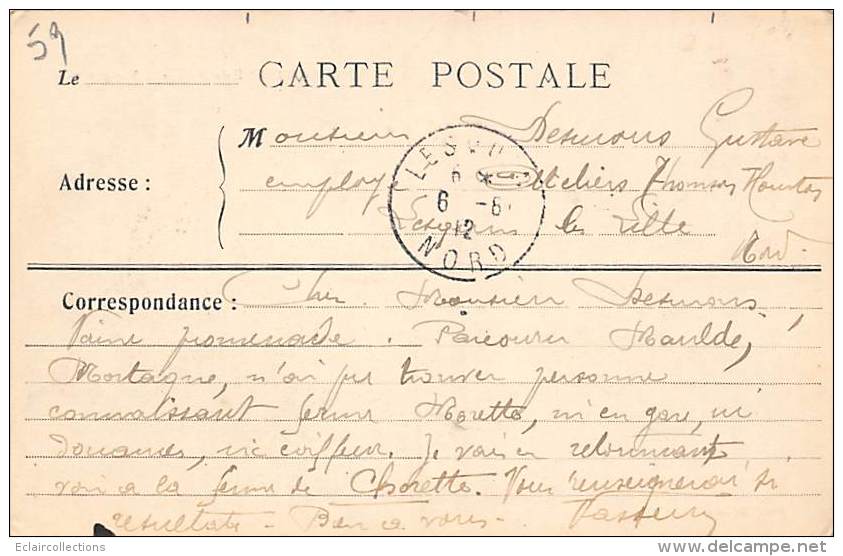 59
Le
CARTE POSTALE
Monsieur Desmons Gustave
Adresse :
employé Atteliers Thomson Houston
Lesquin les Lille
Nord.
LESQUIN
6 *
6 -6
12
NORD
Correspondance : Cher Monsieur Desmons,
Vaine promenade. Parcouru Maulde,
Mortagne, n'ai pu trouver personne
connaissant ferme Morette, ni en gare, ni
douanes, ni coiffeur. Je vais en retournant
voir à la ferme de Chorette. Vous renseignerai si
résultats - Bien à vous -
Eclaircollections
© delcampe.net